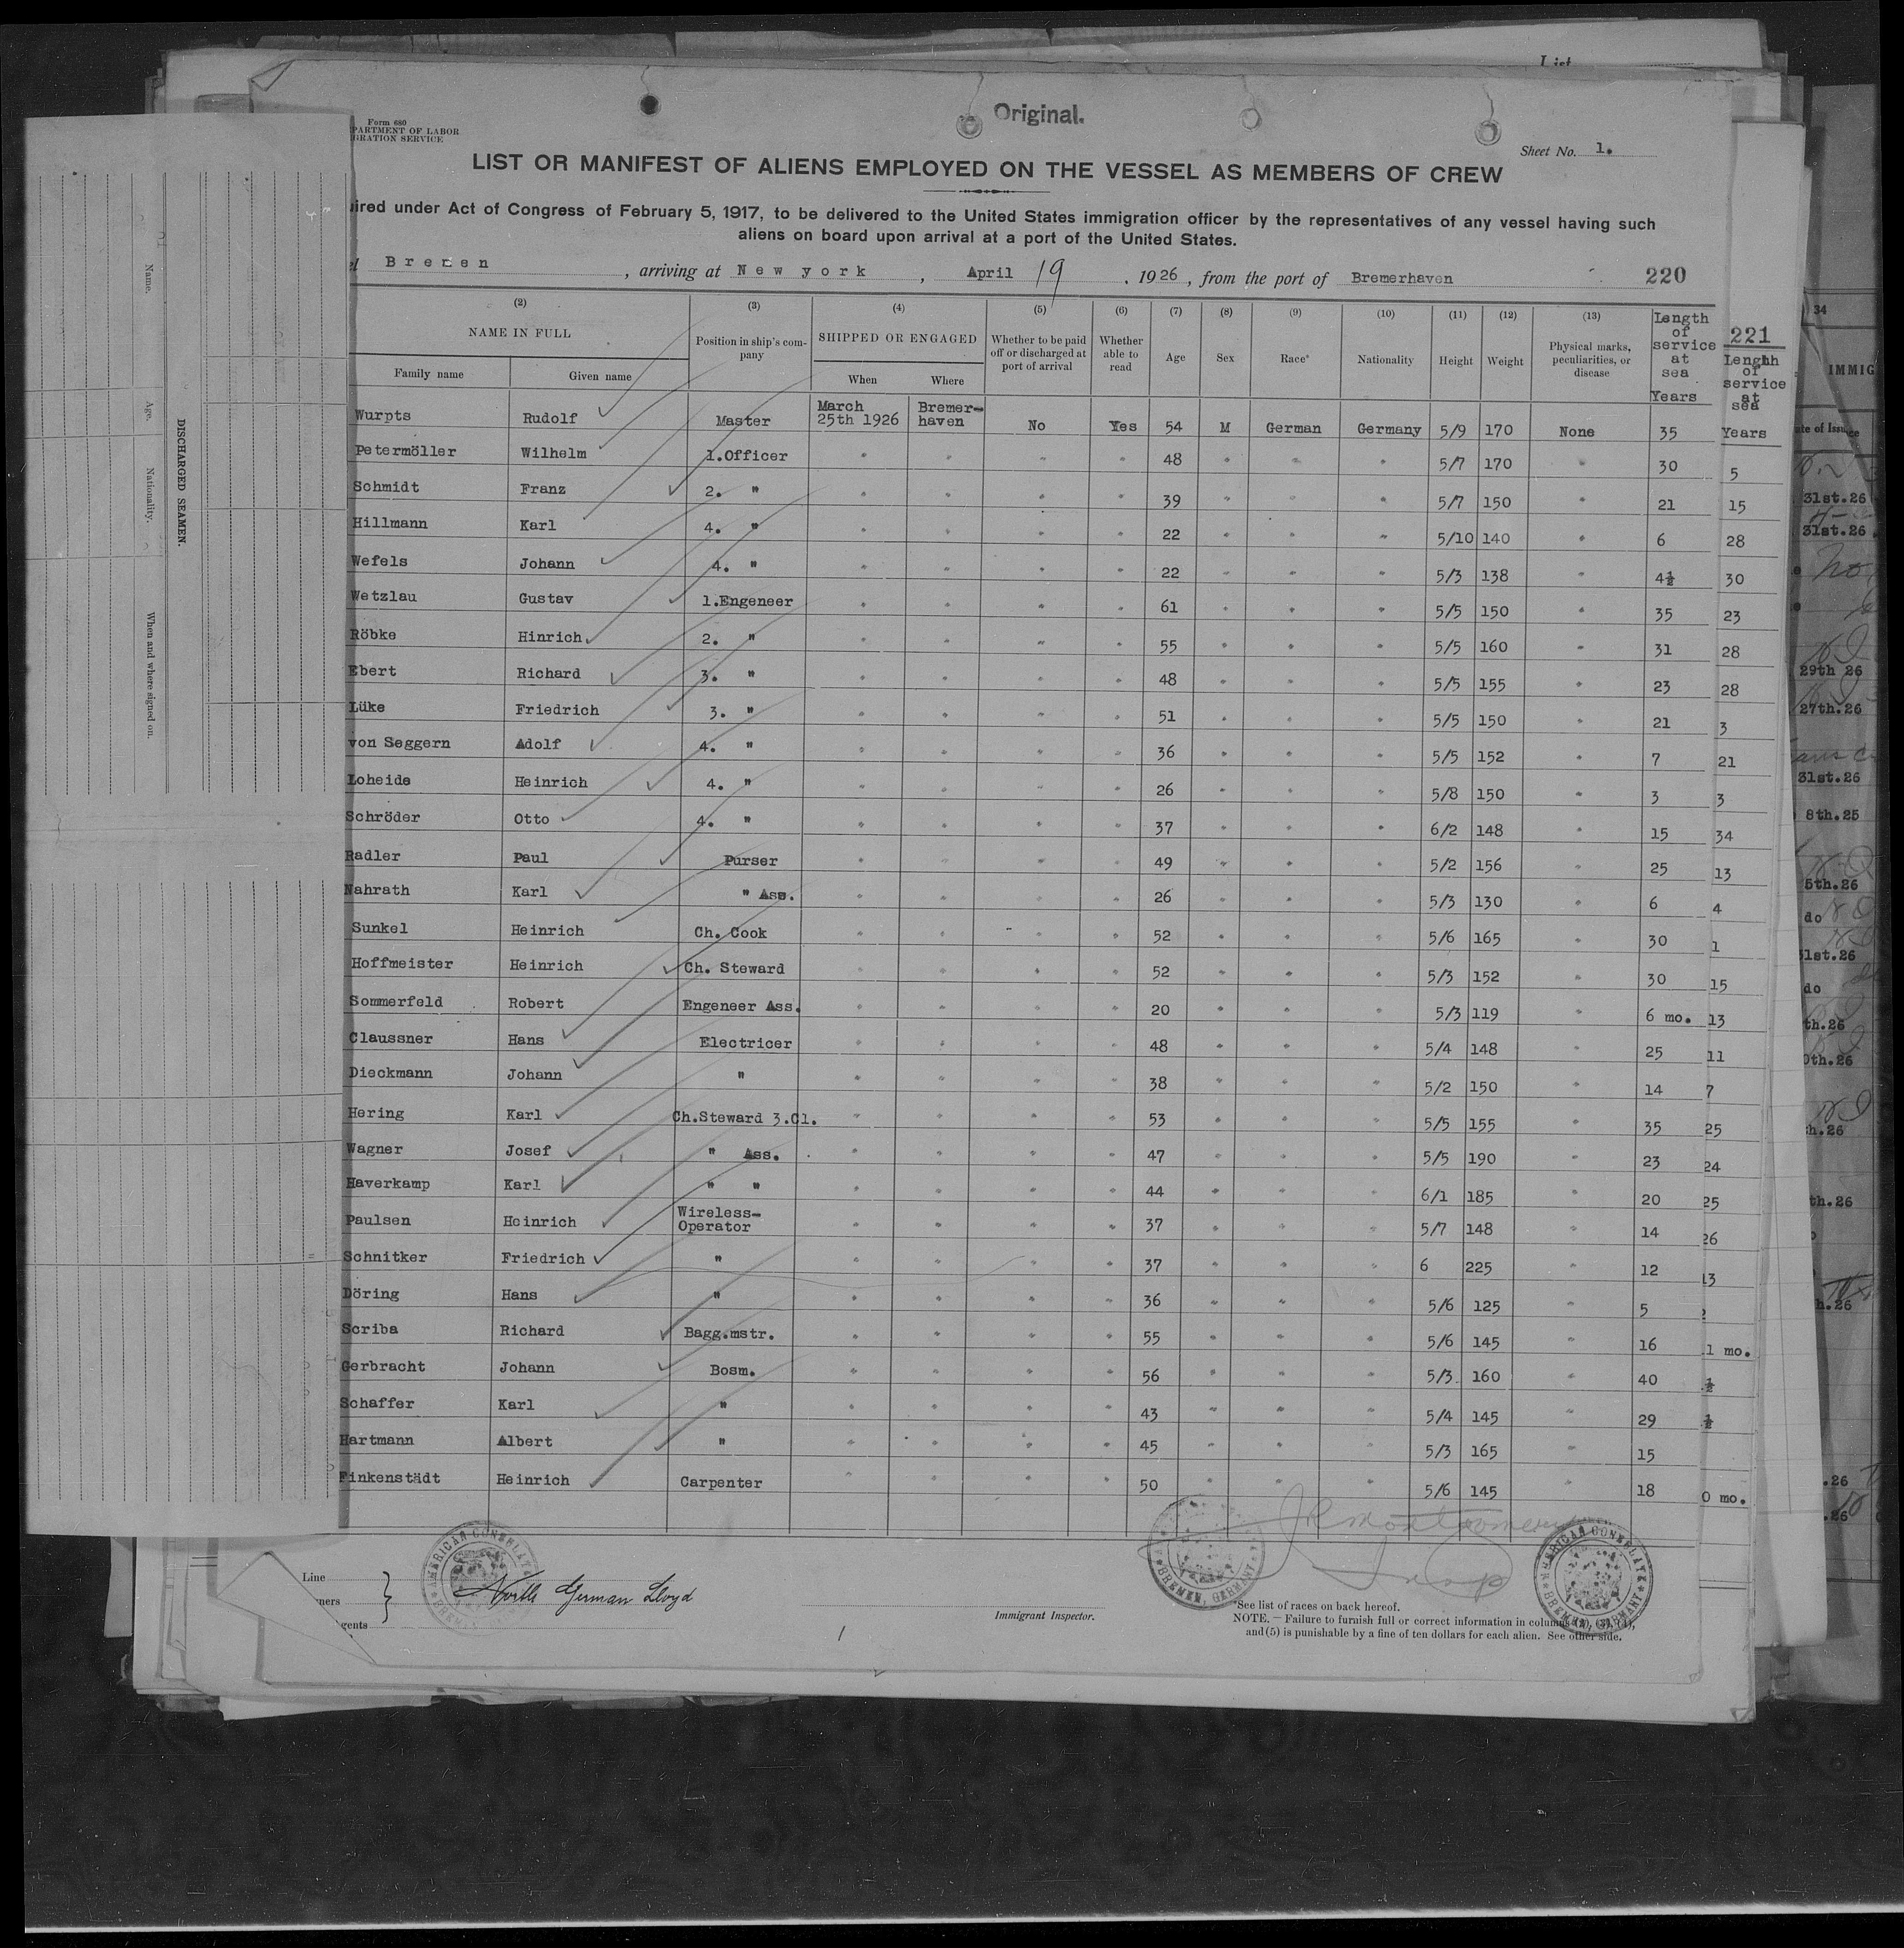 List
Original.
Form 680
PARTMENT OF LABOR
GRATION SERVICE
Sheet No. 1.
LIST OR MANIFEST OF ALIENS EMPLOYED ON THE VESSEL AS MEMBERS OF CREW
ired under Act of Congress of February 5, 1917, to be delivered to the United States immigration officer by the representatives of any vessel having such
aliens on board upon arrival at a port of the United States.
el Bremen, arriving at New york, April 19, 1926, from the port of Bremerhaven 220
(2) (3) (4) (5) (6) (7) (8) (9) (10) (11) (12) (13)
NAME IN FULL Position in ship's company SHIPPED OR ENGAGED Whether to be paid off or discharged at port of arrival Whether able to read Age Sex Race* Nationality Height Weight Physical marks, peculiarities, or disease Length of service at sea Years
Family name Given name When Where
Wurpts Rudolf Master March 25th 1926 Bremer-haven No Yes 54 M German Germany 5/9 170 None 35
Petermöller Wilhelm 1.Officer " " " " 48 " " " 5/7 170 " 30
Schmidt Franz 2. " " " " " 39 " " " 5/7 150 " 21
Hillmann Karl 4. " " " " " 22 " " " 5/10 140 " 6
Wefels Johann 4. " " " " " 22 " " " 5/3 138 " 4½
Wetzlau Gustav 1.Engeneer " " " " 61 " " " 5/5 150 " 35
Röbke Hinrich 2. " " " " " 55 " " " 5/5 160 " 31
Ebert Richard 3. " " " " " 48 " " " 5/5 155 " 23
Lüke Friedrich 3. " " " " " 51 " " " 5/5 150 " 21
von Seggern Adolf 4. " " " " " 36 " " " 5/5 152 " 7
Loheide Heinrich 4. " " " " " 26 " " " 5/8 150 " 3
Schröder Otto 4. " " " " " 37 " " " 6/2 148 " 15
Radler Paul Purser " " " " 49 " " " 5/2 156 " 25
Nahrath Karl " Ass. " " " " 26 " " " 5/3 130 " 6
Sunkel Heinrich Ch. Cook " " " " 52 " " " 5/6 165 " 30
Hoffmeister Heinrich Ch. Steward " " " " 52 " " " 5/3 152 " 30
Sommerfeld Robert Engeneer Ass. " " " " 20 " " " 5/3 119 " 6 mo.
Claussner Hans Electricer " " " " 48 " " " 5/4 148 " 25
Dieckmann Johann " " " " " 38 " " " 5/2 150 " 14
Hering Karl Ch.Steward 3.Cl. " " " " 53 " " " 5/5 155 " 35
Wagner Josef " Ass. " " " " 47 " " " 5/5 190 " 23
Haverkamp Karl " " " " " " 44 " " " 6/1 185 " 20
Paulsen Heinrich Wireless-Operator " " " " 37 " " " 5/7 148 " 14
Schnitker Friedrich " " " " " 37 " " " 6 225 " 12
Döring Hans " " " " " 36 " " " 5/6 125 " 5
Scriba Richard Bagg.mstr. " " " " 55 " " " 5/6 145 " 16
Gerbracht Johann Bosm. " " " " 56 " " " 5/3 160 " 40
Schaffer Karl " " " " " 43 " " " 5/4 145 " 29
Hartmann Albert " " " " " 45 " " " 5/3 165 " 15
Finkenstädt Heinrich Carpenter " " " " 50 " " " 5/6 145 " 18
Line
ners
gents
North German Lloyd
AMERICAN CONSULATE
BREMEN, GERMANY
JR Montgomery
Immigrant Inspector.
*See list of races on back hereof.
NOTE. — Failure to furnish full or correct information in columns (2), (3), (4),
and (5) is punishable by a fine of ten dollars for each alien. See other side.
DISCHARGED SEAMEN.
Name.
Age.
Nationality.
When and where signed on.
221
Length
of
service
at
sea
Years
5
15
28
30
23
28
28
3
21
3
34
13
4
1
15
13
11
7
25
24
25
26
13
2
1 mo.
½
½
0 mo.
34
IMMIG
te of Issue
31st.26
31st.26
No
29th 26
27th.26
31st.26
8th.25
5th.26
do
1st.26
do
th.26
0th.26
h.26
th.26
h.26
.26
.26